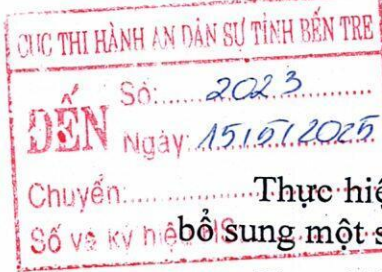 CỤC THI HÀNH ÁN DÂN SỰ TỈNH BẾN TRE
ĐẾN
Số: 2023
Ngày: 15/5/2025
Chuyển:
Thực hiệ
Số và ký hiệu HS
bổ sung một s